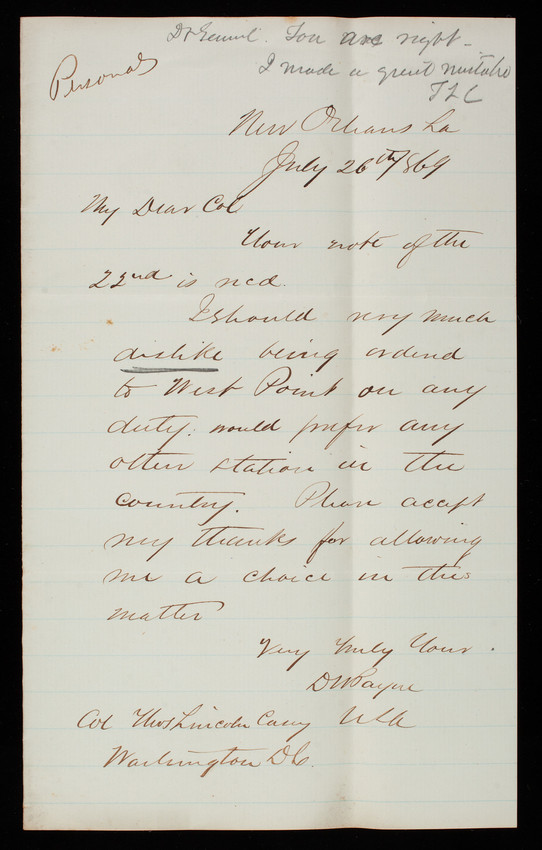 Dr Genrl. You are right -
I made a great mistake
TLC
Personal
New Orleans La
July 26th/869
My Dear Col
Your note of the
22nd is recd.
I should very much
dislike being ordered
to West Point on any
duty. would prefer any
other station in the
country. Please accept
my thanks for allowing
me a choice in the
matter
Very Truly Your
Payne
USA
Col Thos Lincoln Casey
Washington DC.